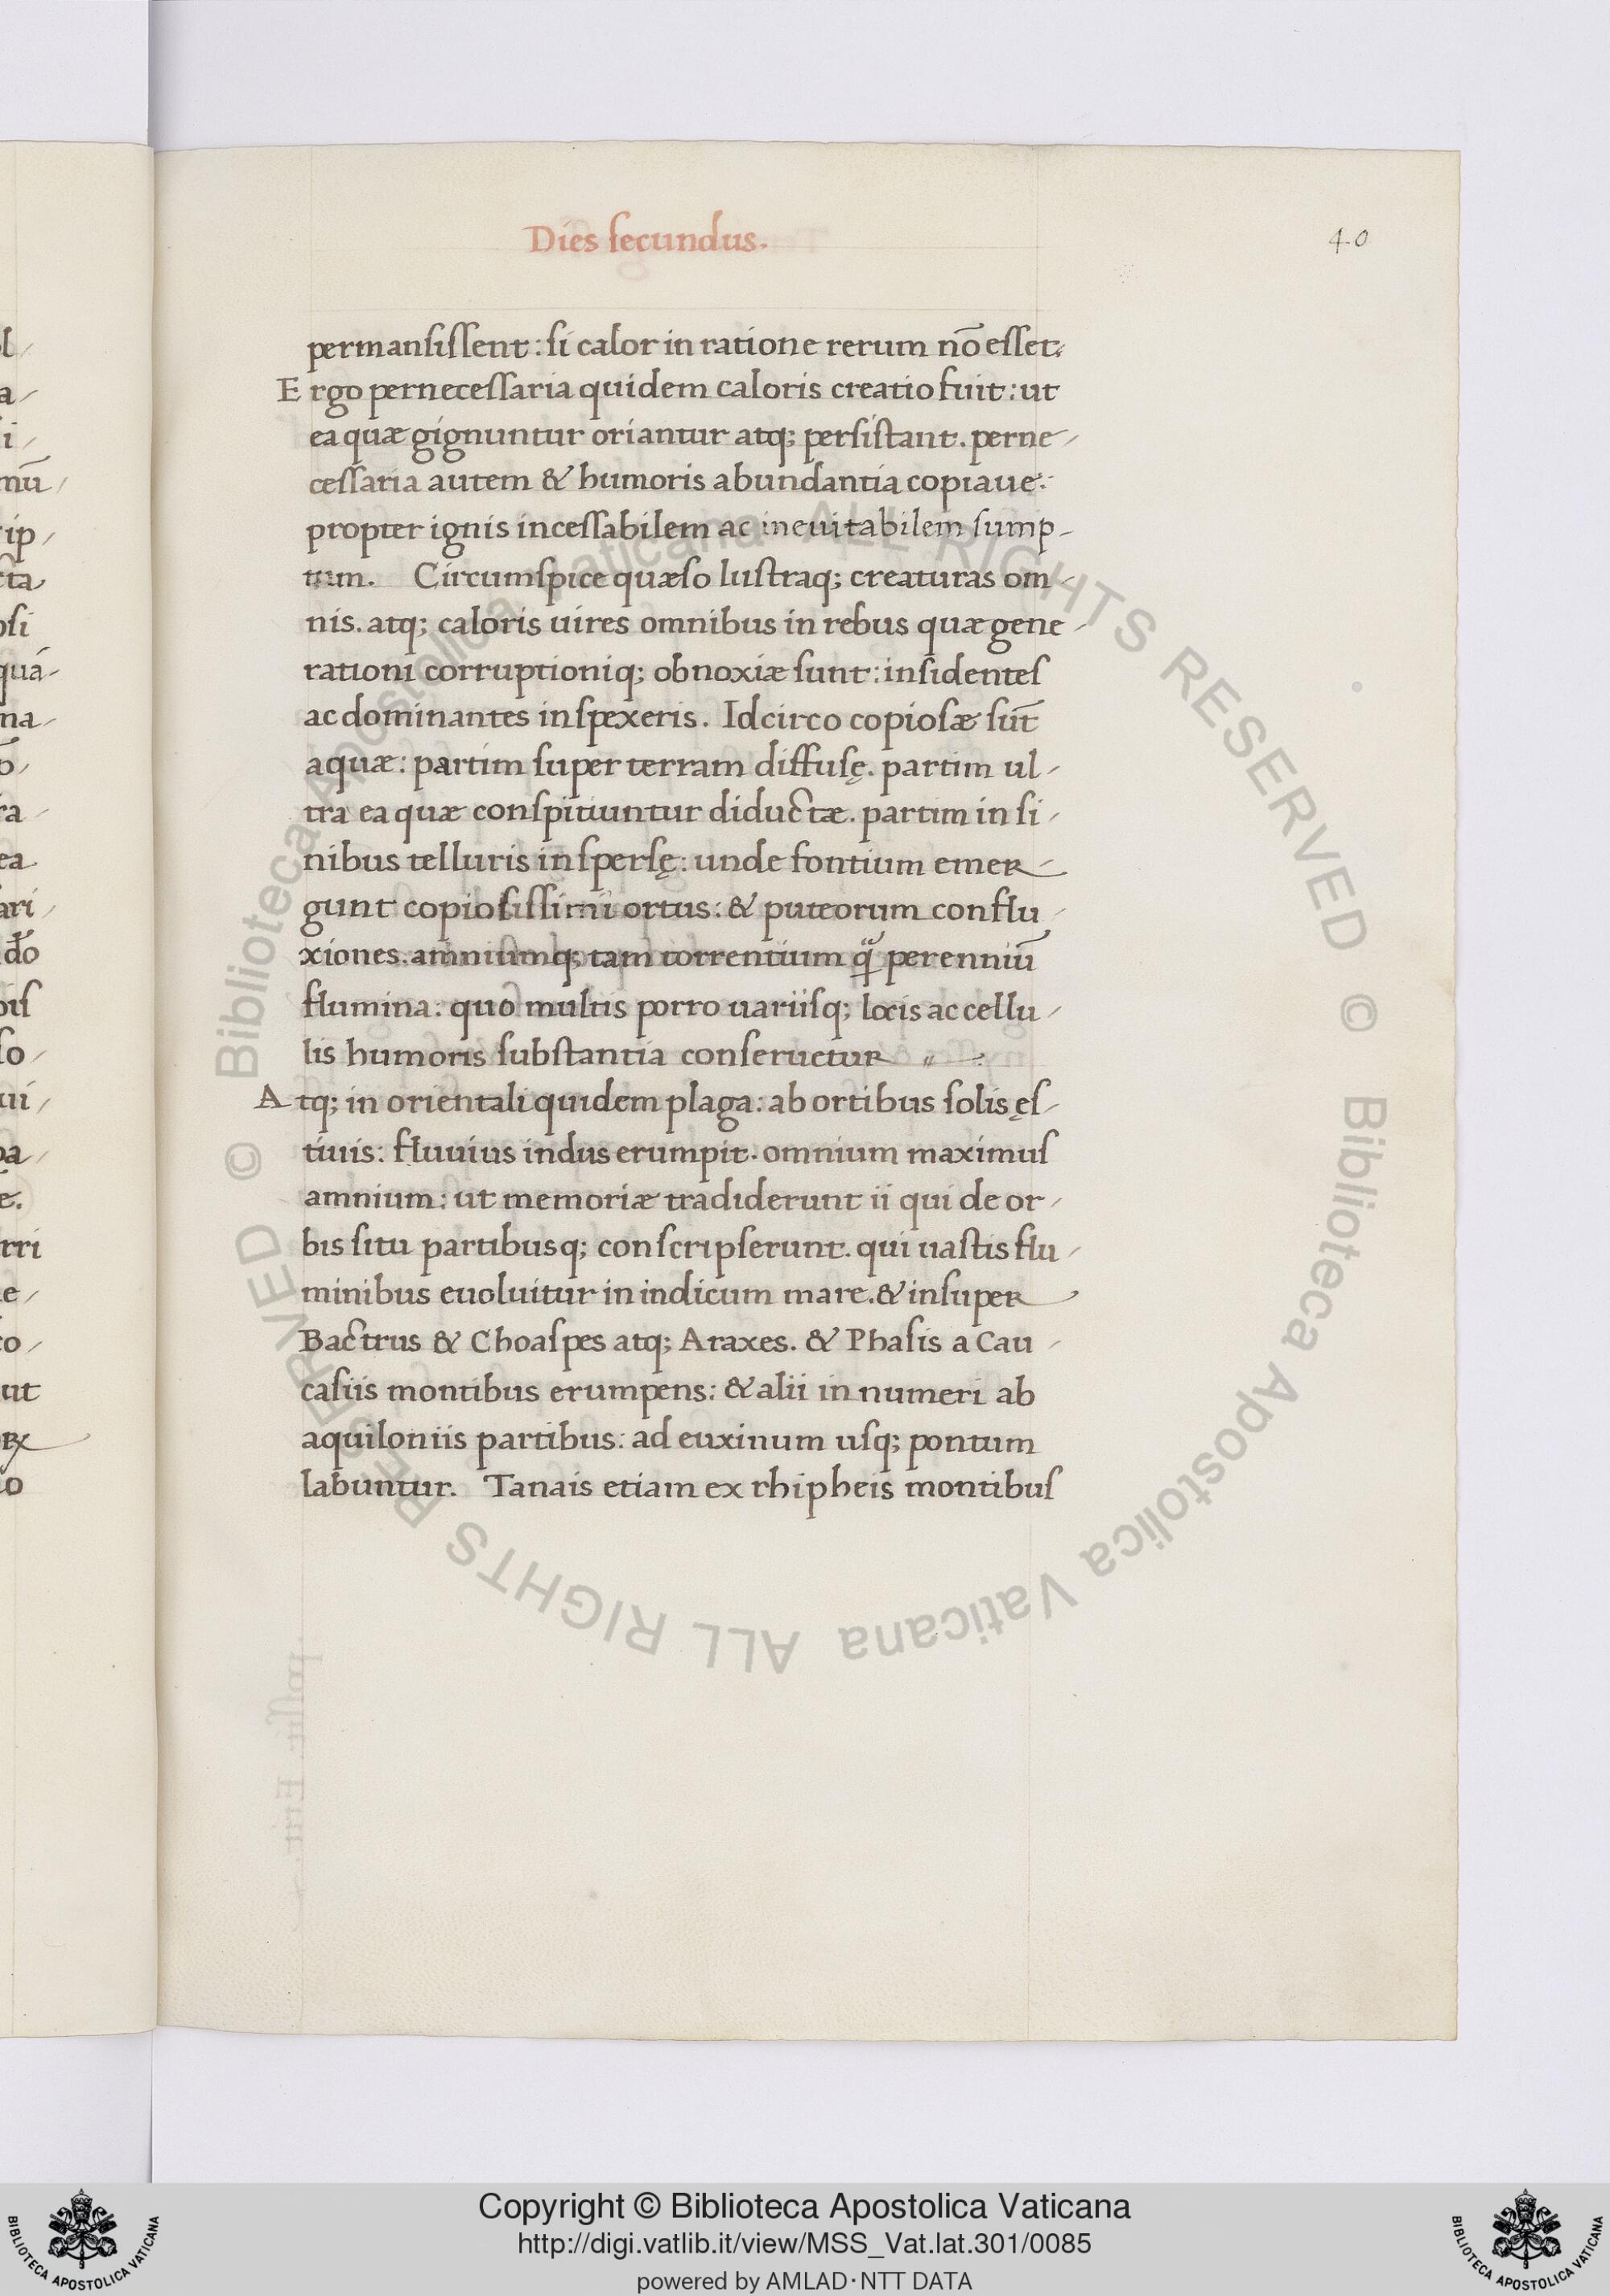 Dies secundus.
40
permansissent: si calor in ratione rerum nō esset.
Ergo pernecessaria quidem caloris creatio fuit: ut
ea quæ gignuntur oriantur atq; persistant. perne/
cessaria autem & humoris abundantia copiaue:
propter ignis incessabilem ac ineuitabilem sump/
tum. Circumspice quæso lustraq; creaturas om/
nis. atq; caloris uires omnibus in rebus quæ gene/
rationi corruptioniq; obnoxiæ sunt: insidentes
ac dominantes inspexeris. Idcirco copiosæ sūt
aquæ: partim super terram diffusę. partim ul/
tra ea quæ conspitiuntur diductæ. partim in si/
nibus telluris inspersę: unde fontium emer
gunt copiosissimi ortus: & puteorum conflu/
xiones. amniumq; tam torrentium q̃ perenniū
flumina: quo multis porro uariisq; locis ac cellu/
lis humoris substantia conseruetur
Atq; in orientali quidem plaga: ab ortibus solis ęs/
tiuis: fluuius indus erumpit. omnium maximus
amnium: ut memoriæ tradiderunt ii qui de or/
bis situ partibusq; conscripserunt. qui uastis flu/
minibus euoluitur in indicum mare. & insuper
Bactrus & Choaspes atq; Araxes. & Phasis a Cau/
casiis montibus erumpens: & alii innumeri ab
aquiloniis partibus: ad euxinum usq; pontum
labuntur. Tanais etiam ex rhipheis montibus
Copyright © Biblioteca Apostolica Vaticana
http://digi.vatlib.it/view/MSS_Vat.lat.301/0085
powered by AMLAD·NTT DATA